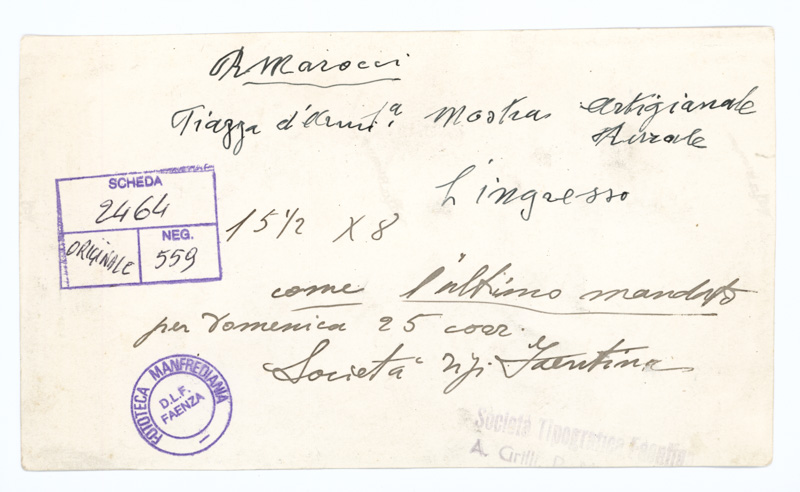 R Marocci
Piazza d'Armi 1ª Mostra Artigianale
Rurale
L'ingresso
SCHEDA
2464
ORIGINALE
NEG.
559
15 1/2 X 8
come l'ultimo mandato
per Domenica 25 corr.
Società Faentina
FOTOTECA MANFREDIANA
D.L.F.
FAENZA
Società Tipografica
A.